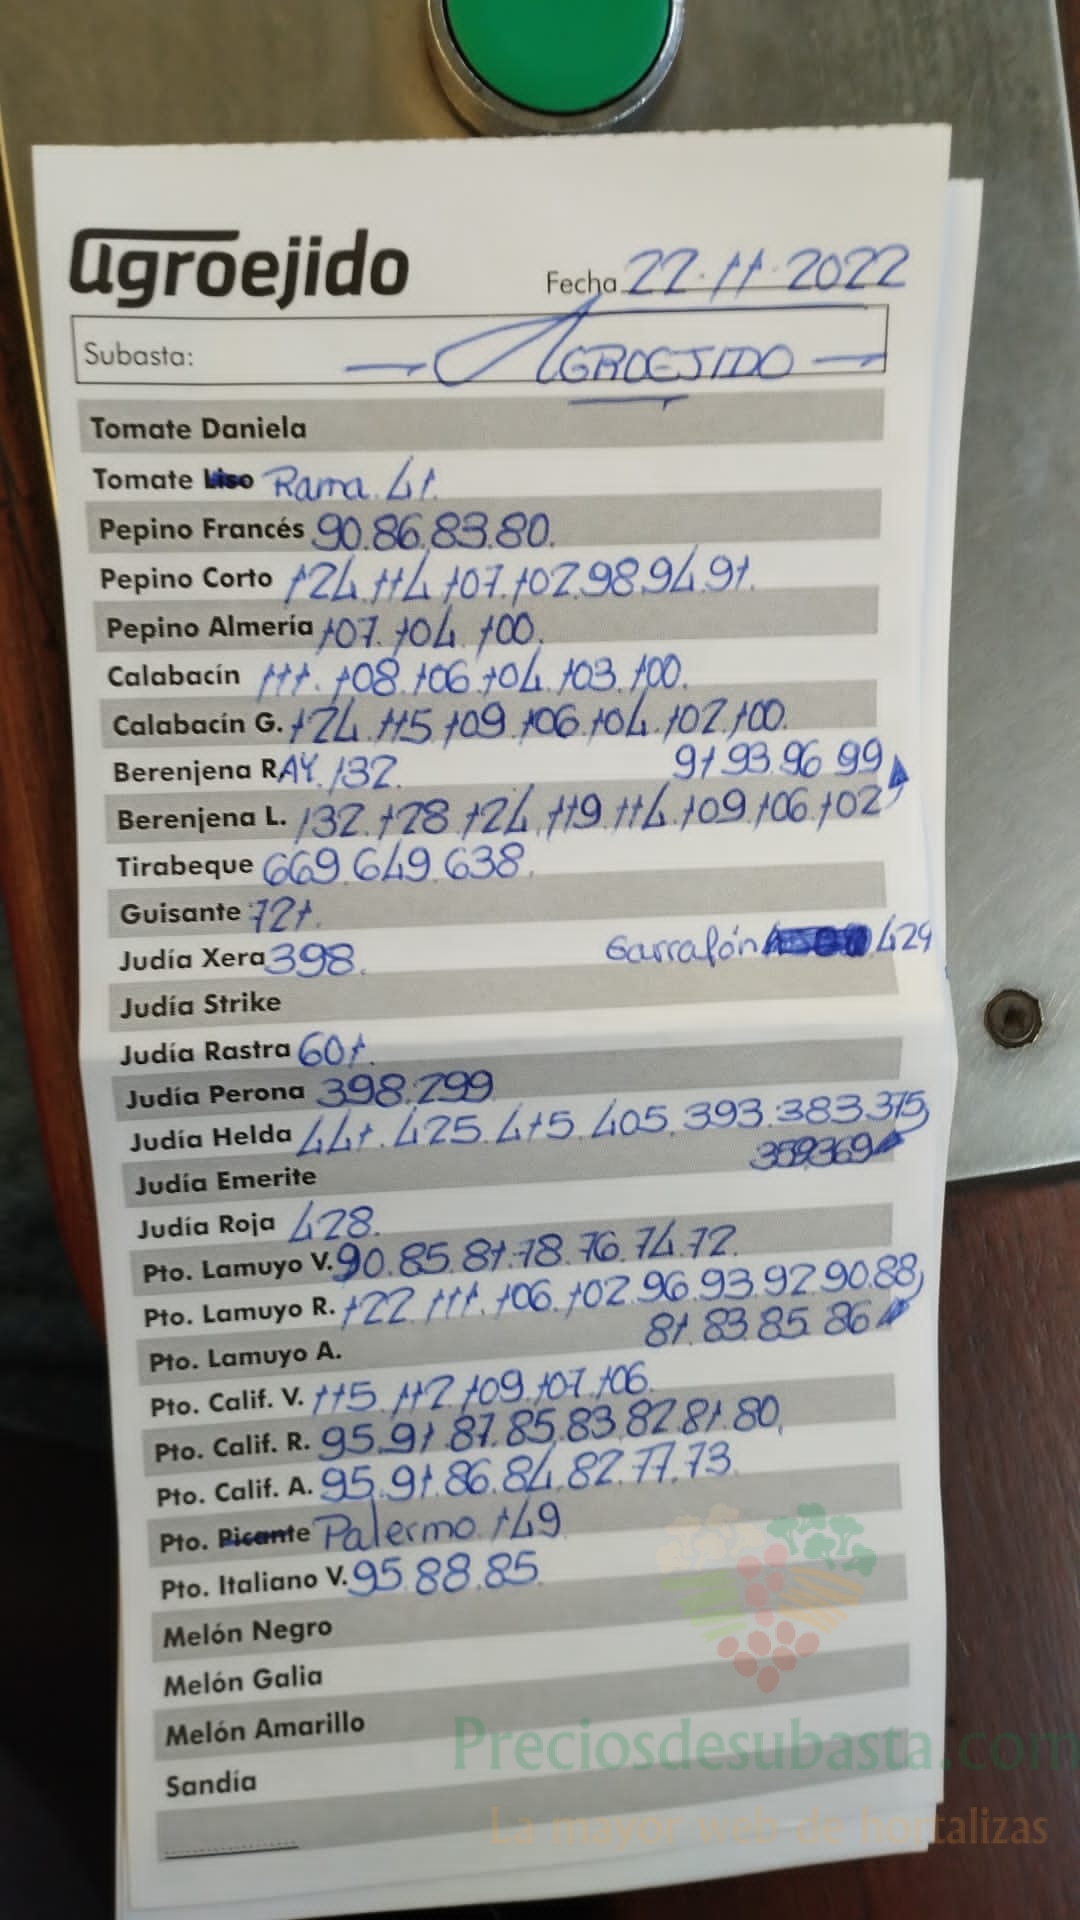 agroejido
Fecha 22-11-2022
Subasta: — AGROEJIDO —
Tomate Daniela
Tomate Liso Rama. 41.
Pepino Francés 90.86.83.80.
Pepino Corto 124.114.107.102.98.94.91.
Pepino Almería 107.104.100.
Calabacín 111.108.106.104.103.100.
Calabacín G. 124.115.109.106.104.102.100.
Berenjena RAY. 132. 91.93.96.99
Berenjena L. 132.128.124.119.114.109.106.102
Tirabeque 669.649.638.
Guisante 721.
Judía Xera 398. Garrafón 429
Judía Strike
Judía Rastra 601.
Judía Perona 398.299
Judía Helda 441.425.415.405.393.383.375
359.369
Judía Emerite
Judía Roja 428.
Pto. Lamuyo V. 90.85.81.78.76.74.72.
Pto. Lamuyo R. 122.111.106.102.96.93.92.90.88
81.83.85.86
Pto. Lamuyo A.
Pto. Calif. V. 115.112.109.107.106.
Pto. Calif. R. 95.91.87.85.83.82.81.80.
Pto. Calif. A. 95.91.86.84.82.77.73.
Pto. Picante Palermo. 149
Pto. Italiano V. 95.88.85.
Melón Negro
Melón Galia
Melón Amarillo
Sandía
Preciosdesubasta.com
La mayor web de hortalizas